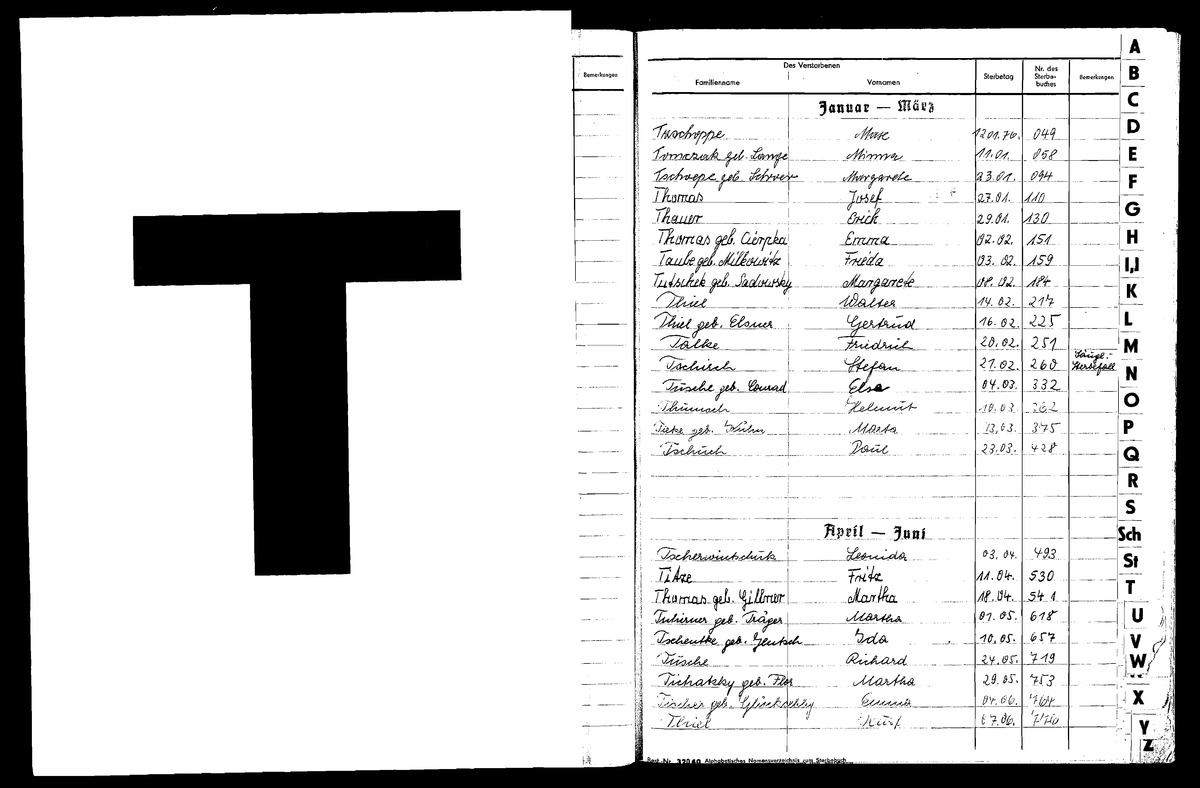 T
Bemerkungen
Des Verstorbenen
Familienname Vornamen Sterbetag Nr. des Sterbe-buches Bemerkungen
Januar — März
Tuschoppe Max 12 01.76. 049
Tomczak geb. Lange Minna 11.01. 058
Tschoepe geb. Margarete 23.01. 094
Thomas Josef 27.01. 110
Thauer Erich 29.01. 130
Thomas geb. Cierpka Emma 02.02. 151
Taube geb. Milkowitz Frieda 03.02. 159
Tutschek geb. Sadowsky Margarete 08.02. 184
Thiel Walter 14.02. 217
Thiel geb. Elsner Gertrud 16.02. 225
Talke Friedrich 20.02. 251
Tschirch Stefan 21.02. 260 Säugl.-Sterbefall
Tusche geb. Conrad Elsa 04.03. 332
Helmut 10.03. 362
geb. Kuhn Marta 13.03. 375
Tschuch Paul 23.03. 428
April — Juni
Leonida 03.04. 493
Titze Fritz 11.04. 530
Thomas geb. Gillner Martha 18.04. 541
geb. Träger Martha 01.05. 618
Tschentke geb. Jentsch Ida 10.05. 657
Tusche Richard 24.05. 719
Tichatzky geb. Flor Martha 29.05. 753
Tischer geb. Emma 04.06. 764
Thiel Kurt 07.06. 770
Best.-Nr. 32040 Alphabetisches Namensverzeichnis zum Sterbebuch
A
B
C
D
E
F
G
H
I,J
K
L
M
N
O
P
Q
R
S
Sch
St
T
U
V
W
X
Y
Z